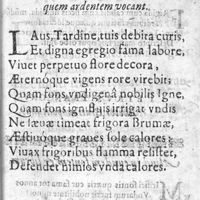 quem ardentem vocant.
LAus, Tardine, tuis debita curis,
Et digna egregio fama labore,
Viuet perpetuo flore decora,
Æternóque vigens rore virebit:
Quam fons vndigená nobilis Igne,
Quam fons igniflàis irrigat vndis
Ne sæuæ timeat frigora Brumæ,
Æstiuósque graues sole calores:
Viuax frigoribus flamma resistet,
Defendet nimios vnda calores.